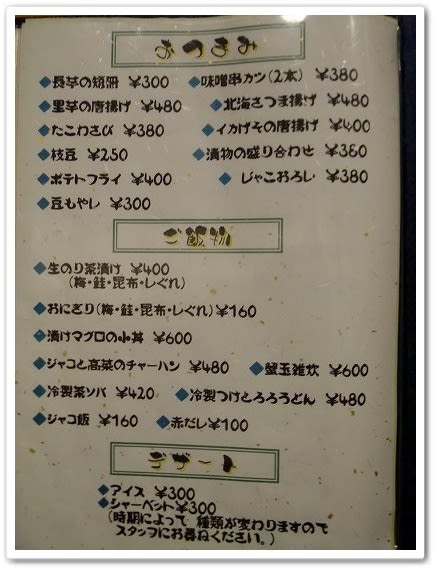 おつまみ
◆長芋の短冊 ¥300 ◆味噌串カツ(2本) ¥380
◆里芋の唐揚げ ¥480 ◆北海さつま揚げ ¥480
◆たこわさび ¥380 ◆イカげその唐揚げ ¥400
◆枝豆 ¥250 ◆漬物の盛り合わせ ¥380
◆ポテトフライ ¥400 ◆じゃこおろし ¥380
◆豆もやし ¥300
ご飯物
◆生のり茶漬け ¥400
(梅・鮭・昆布・しぐれ)
◆おにぎり(梅・鮭・昆布・しぐれ) ¥160
◆漬けマグロの小丼 ¥600
◆ジャコと高菜のチャーハン ¥480 ◆蟹玉雑炊 ¥600
◆冷製茶ソバ ¥420 ◆冷製つけとろろうどん ¥480
◆ジャコ飯 ¥160 ◆赤だし ¥100
デザート
◆アイス ¥300
◆シャーベット ¥300
(時期によって 種類が変わりますので
スタッフにお尋ねください。)